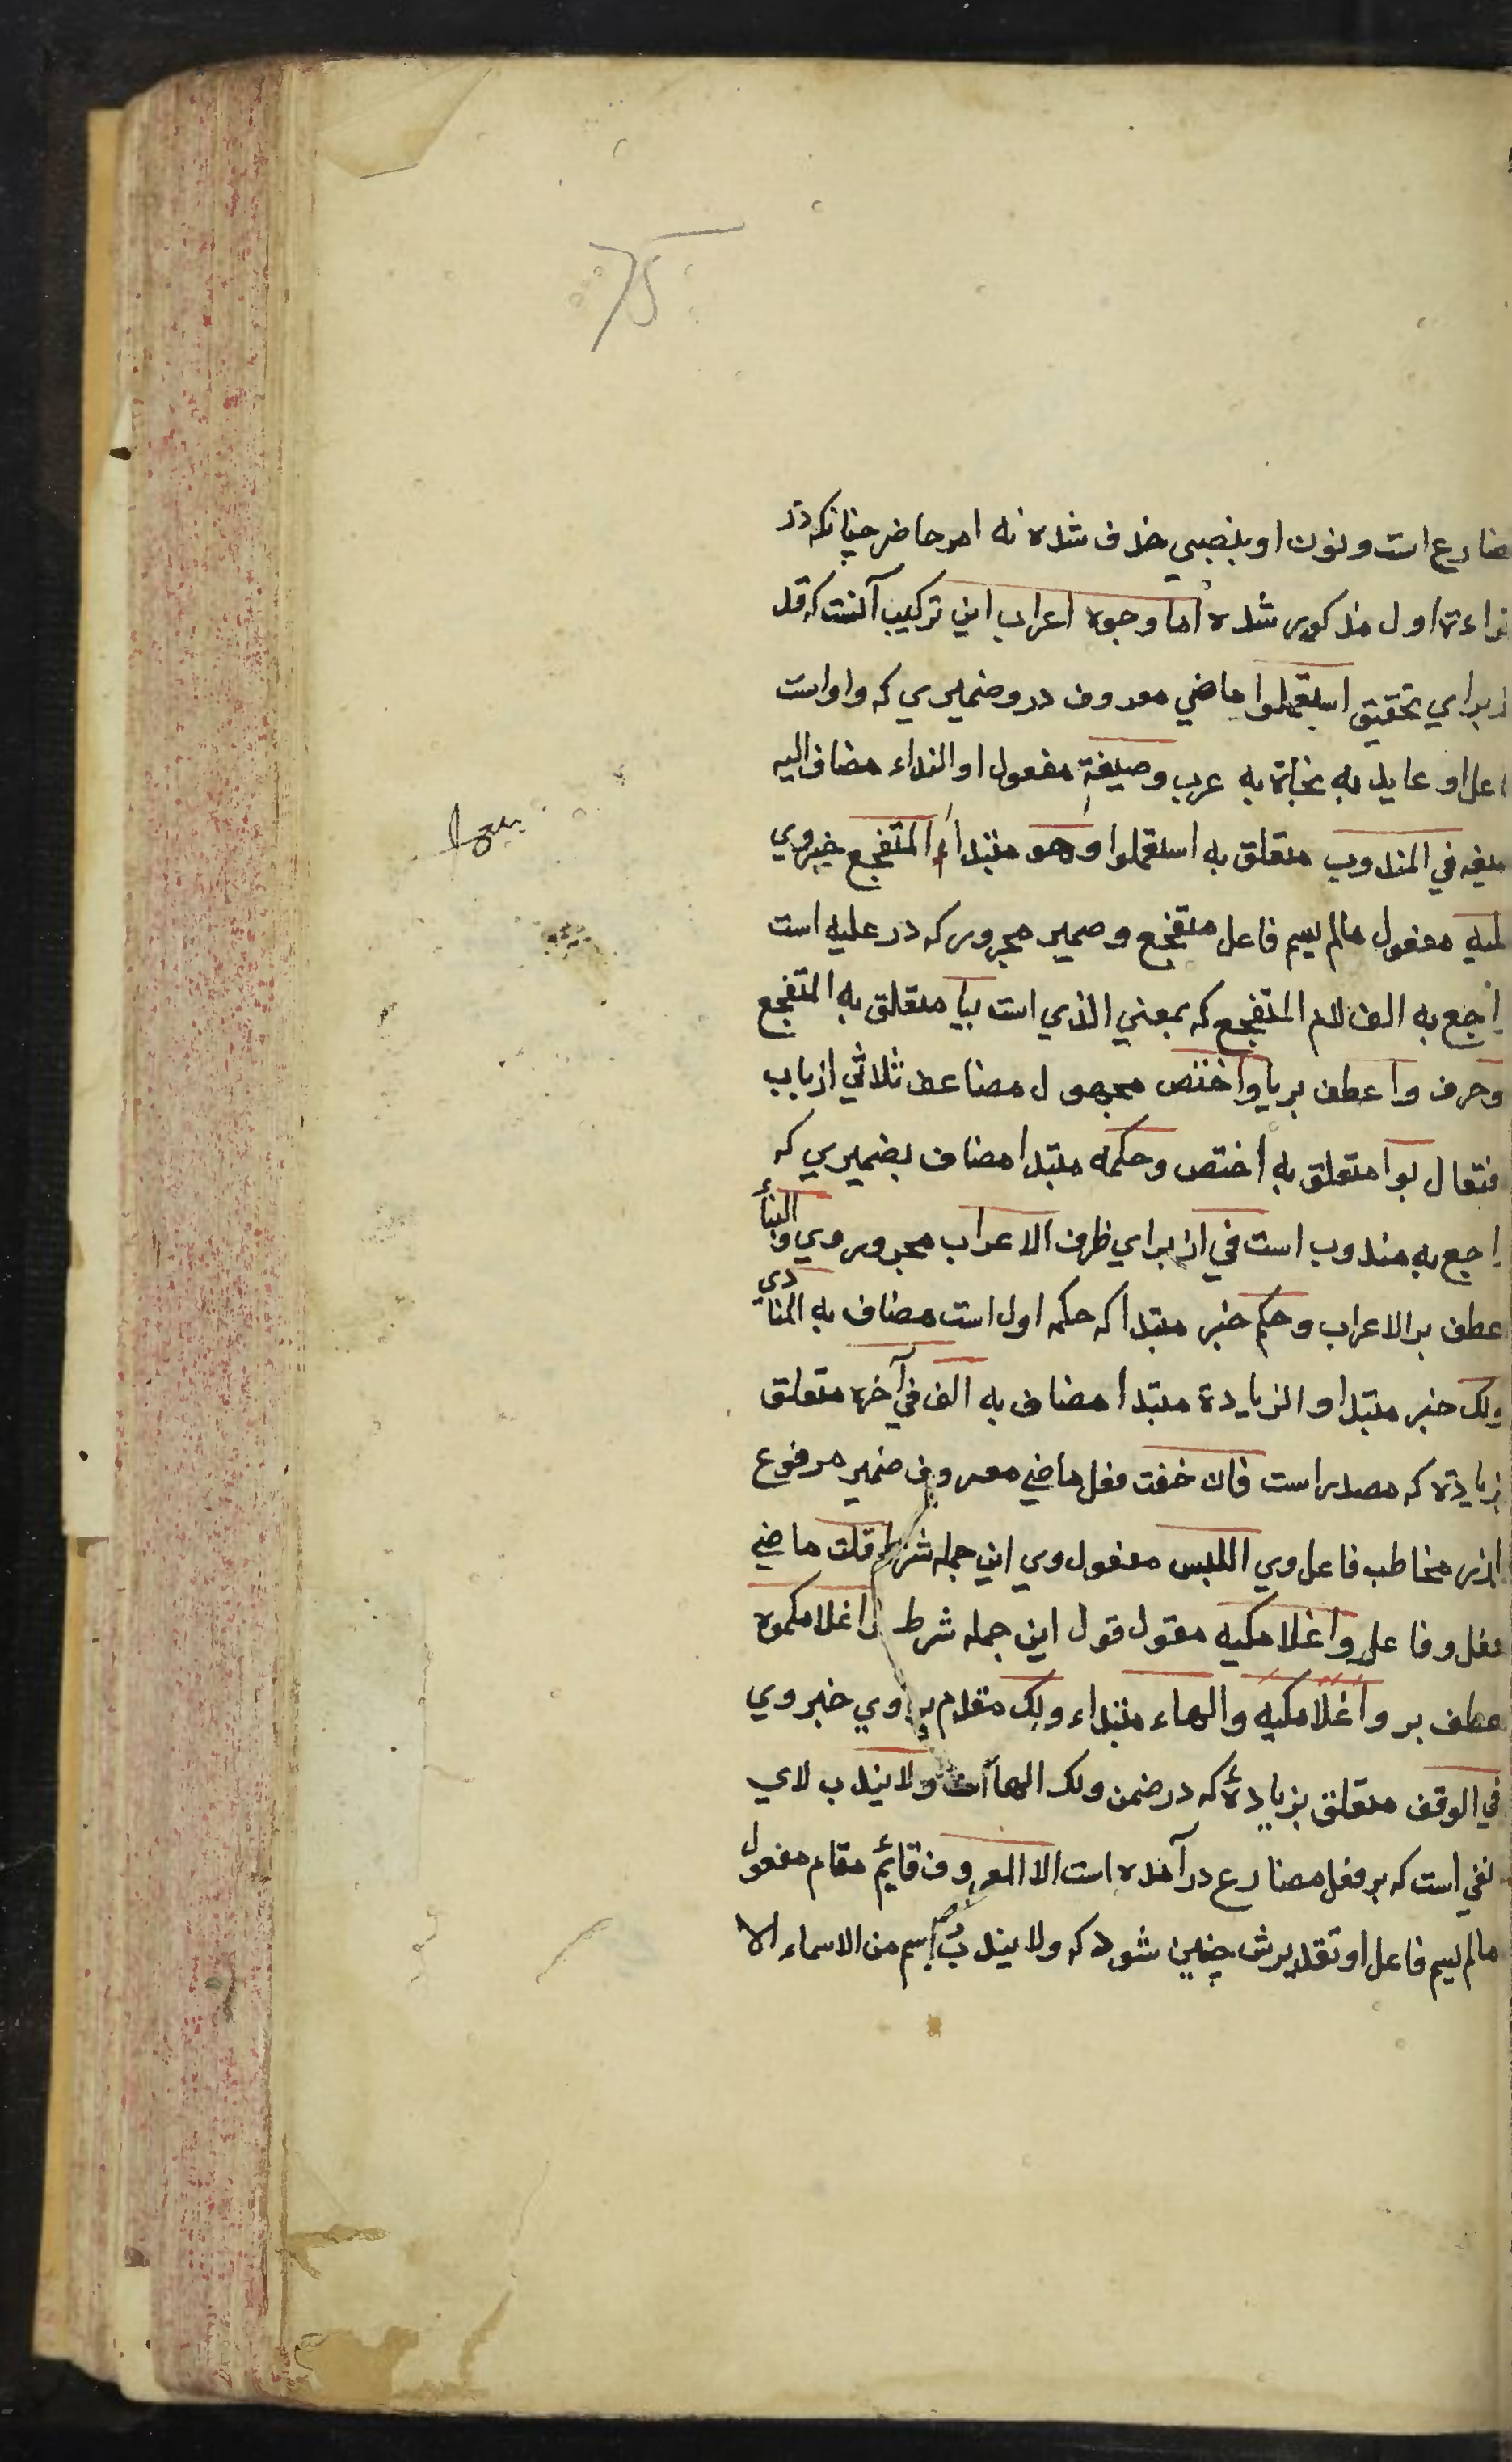 75
ضارع است و نون او بنصبي خذف شده نه امر حاضر چنانكه در
اءة اول مذكور شده اما وجوه اعراب اين تركيب آنست كه قد
زبراي تحقيق استعملوا ماضي معروف درو ضميري كه واو است
اعل او عايد به نحاة به عرب وصيغة مفعول او النداء مضاف اليه
يغه في المندوب متعلق به استعملوا وهو مبتداء المتفجع خبر وي
ليه مفعول مالم يسم فاعل متفجع و ضمير مجرور كه در عليه است
اجع به الف لام المتفجع كه بمعني الذي است بيا متعلق به المتفجع
وحرف وا عطف بر يا واختص مجهول مضاعف ثلاثي از باب
فتعال بوا متعلق به اختص وحكمه مبتدا مضاف بضميري كه
اجع به مندوب است في از براي ظرف الاعراب مجرور وي والبنأ
عطف بر الاعراب وحكم خبر مبتدا كه حكمه اول است مضاف به المنادى
ولك خبر مبتدا و الزيادة مبتدا مضاف به الف في آخره متعلق
بزيادة كه مصدر است فان خفت فعل ماضي معروف ضمير مرفوع
بارز مخاطب فاعل وي اللبس مفعول وي اين جمله شرط قلت ماضي
فعل و فاعل واغلامكيه مقول قول اين جمله شرط واغلامكموه
عطف بر واغلامكيه والهاء مبتداء ولك مقدم بر وي خبر وي
في الوقف متعلق بزيادة كه در ضمن ولك الها است ولا يندب لاي
نفي است كه بر فعل مضارع در آمده است الا المعروف قايم مقام مفعول
مالم يسم فاعل او تقديرش چنين شود كه ولا يندب اسم من الاسماء الا